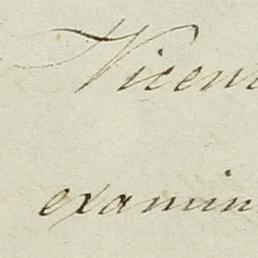 Vicen
examin